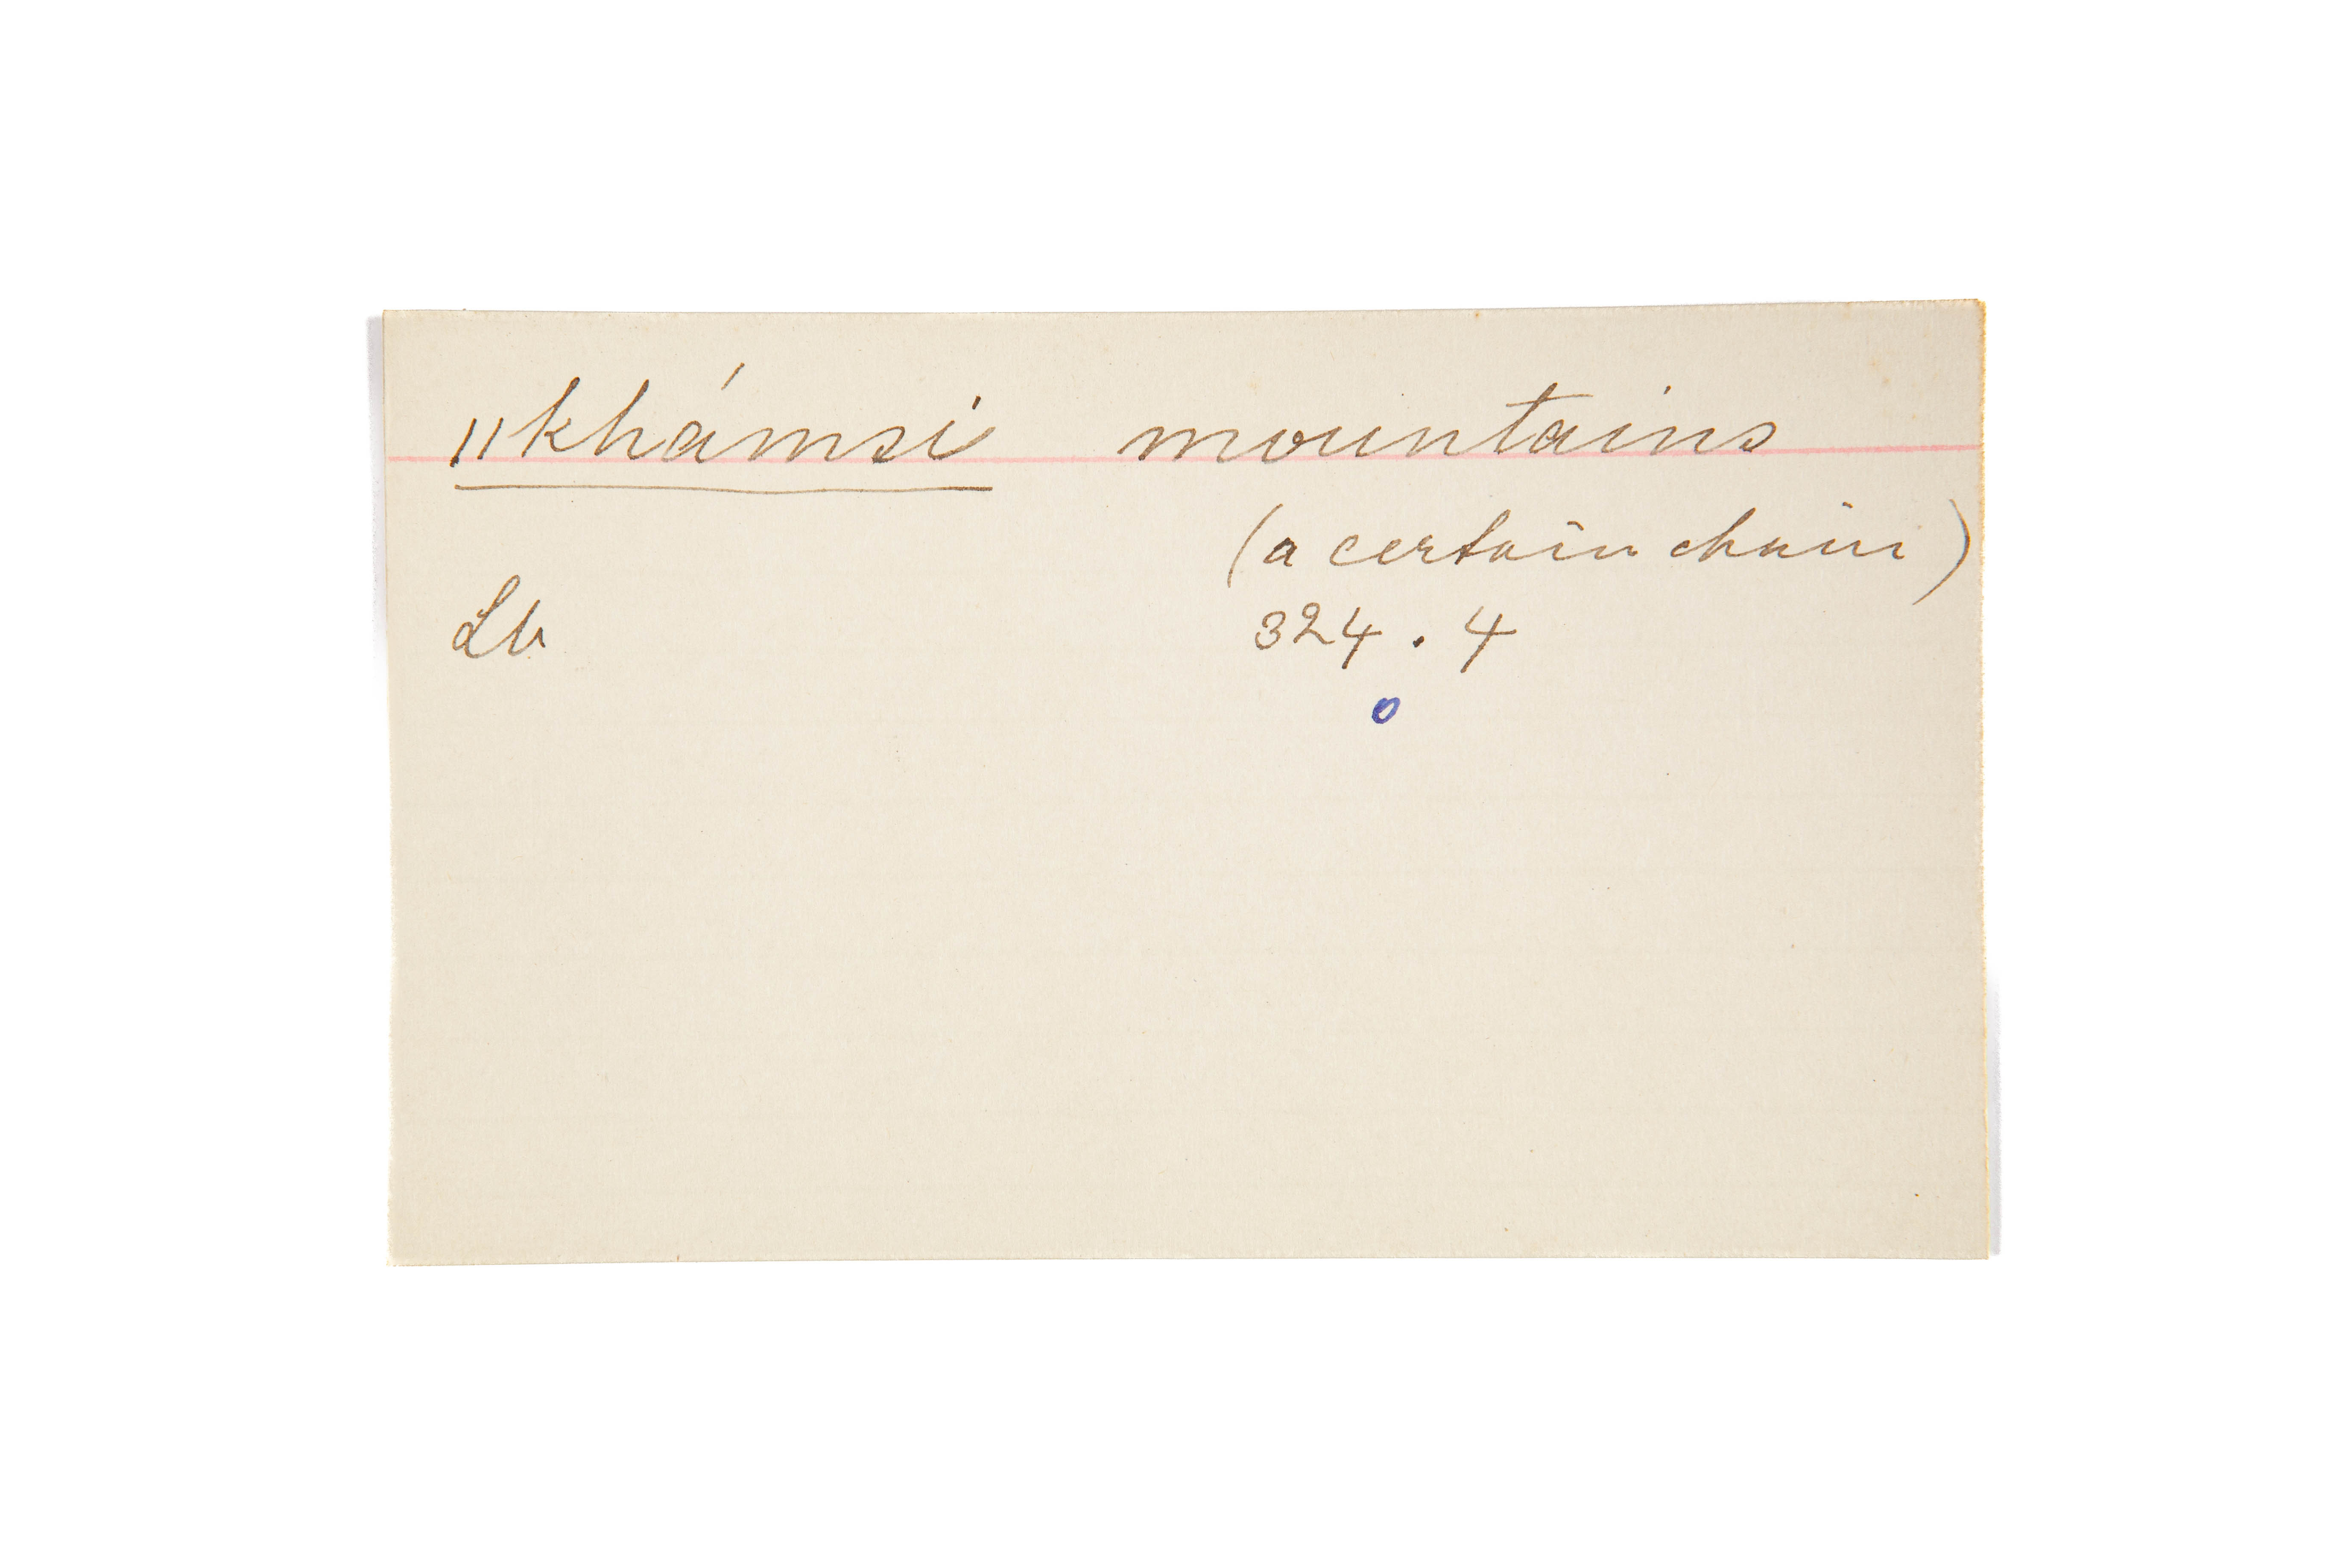 ‖khámsi mountains
(a certain chain)
Lb 324 . 4
o